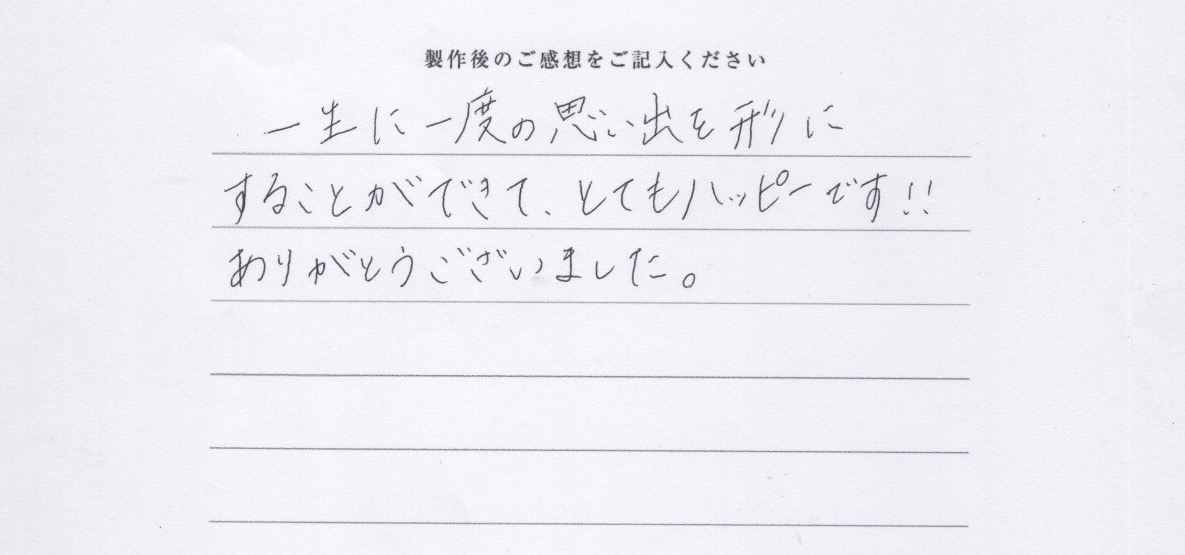 製作後のご感想をご記入ください
一生に一度の思い出を形に
することができて、とてもハッピーです!!
ありがとうございました。